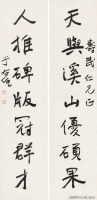 天與溪山優碩果
人推碑版冠群才
壽民仁兄正
于右任